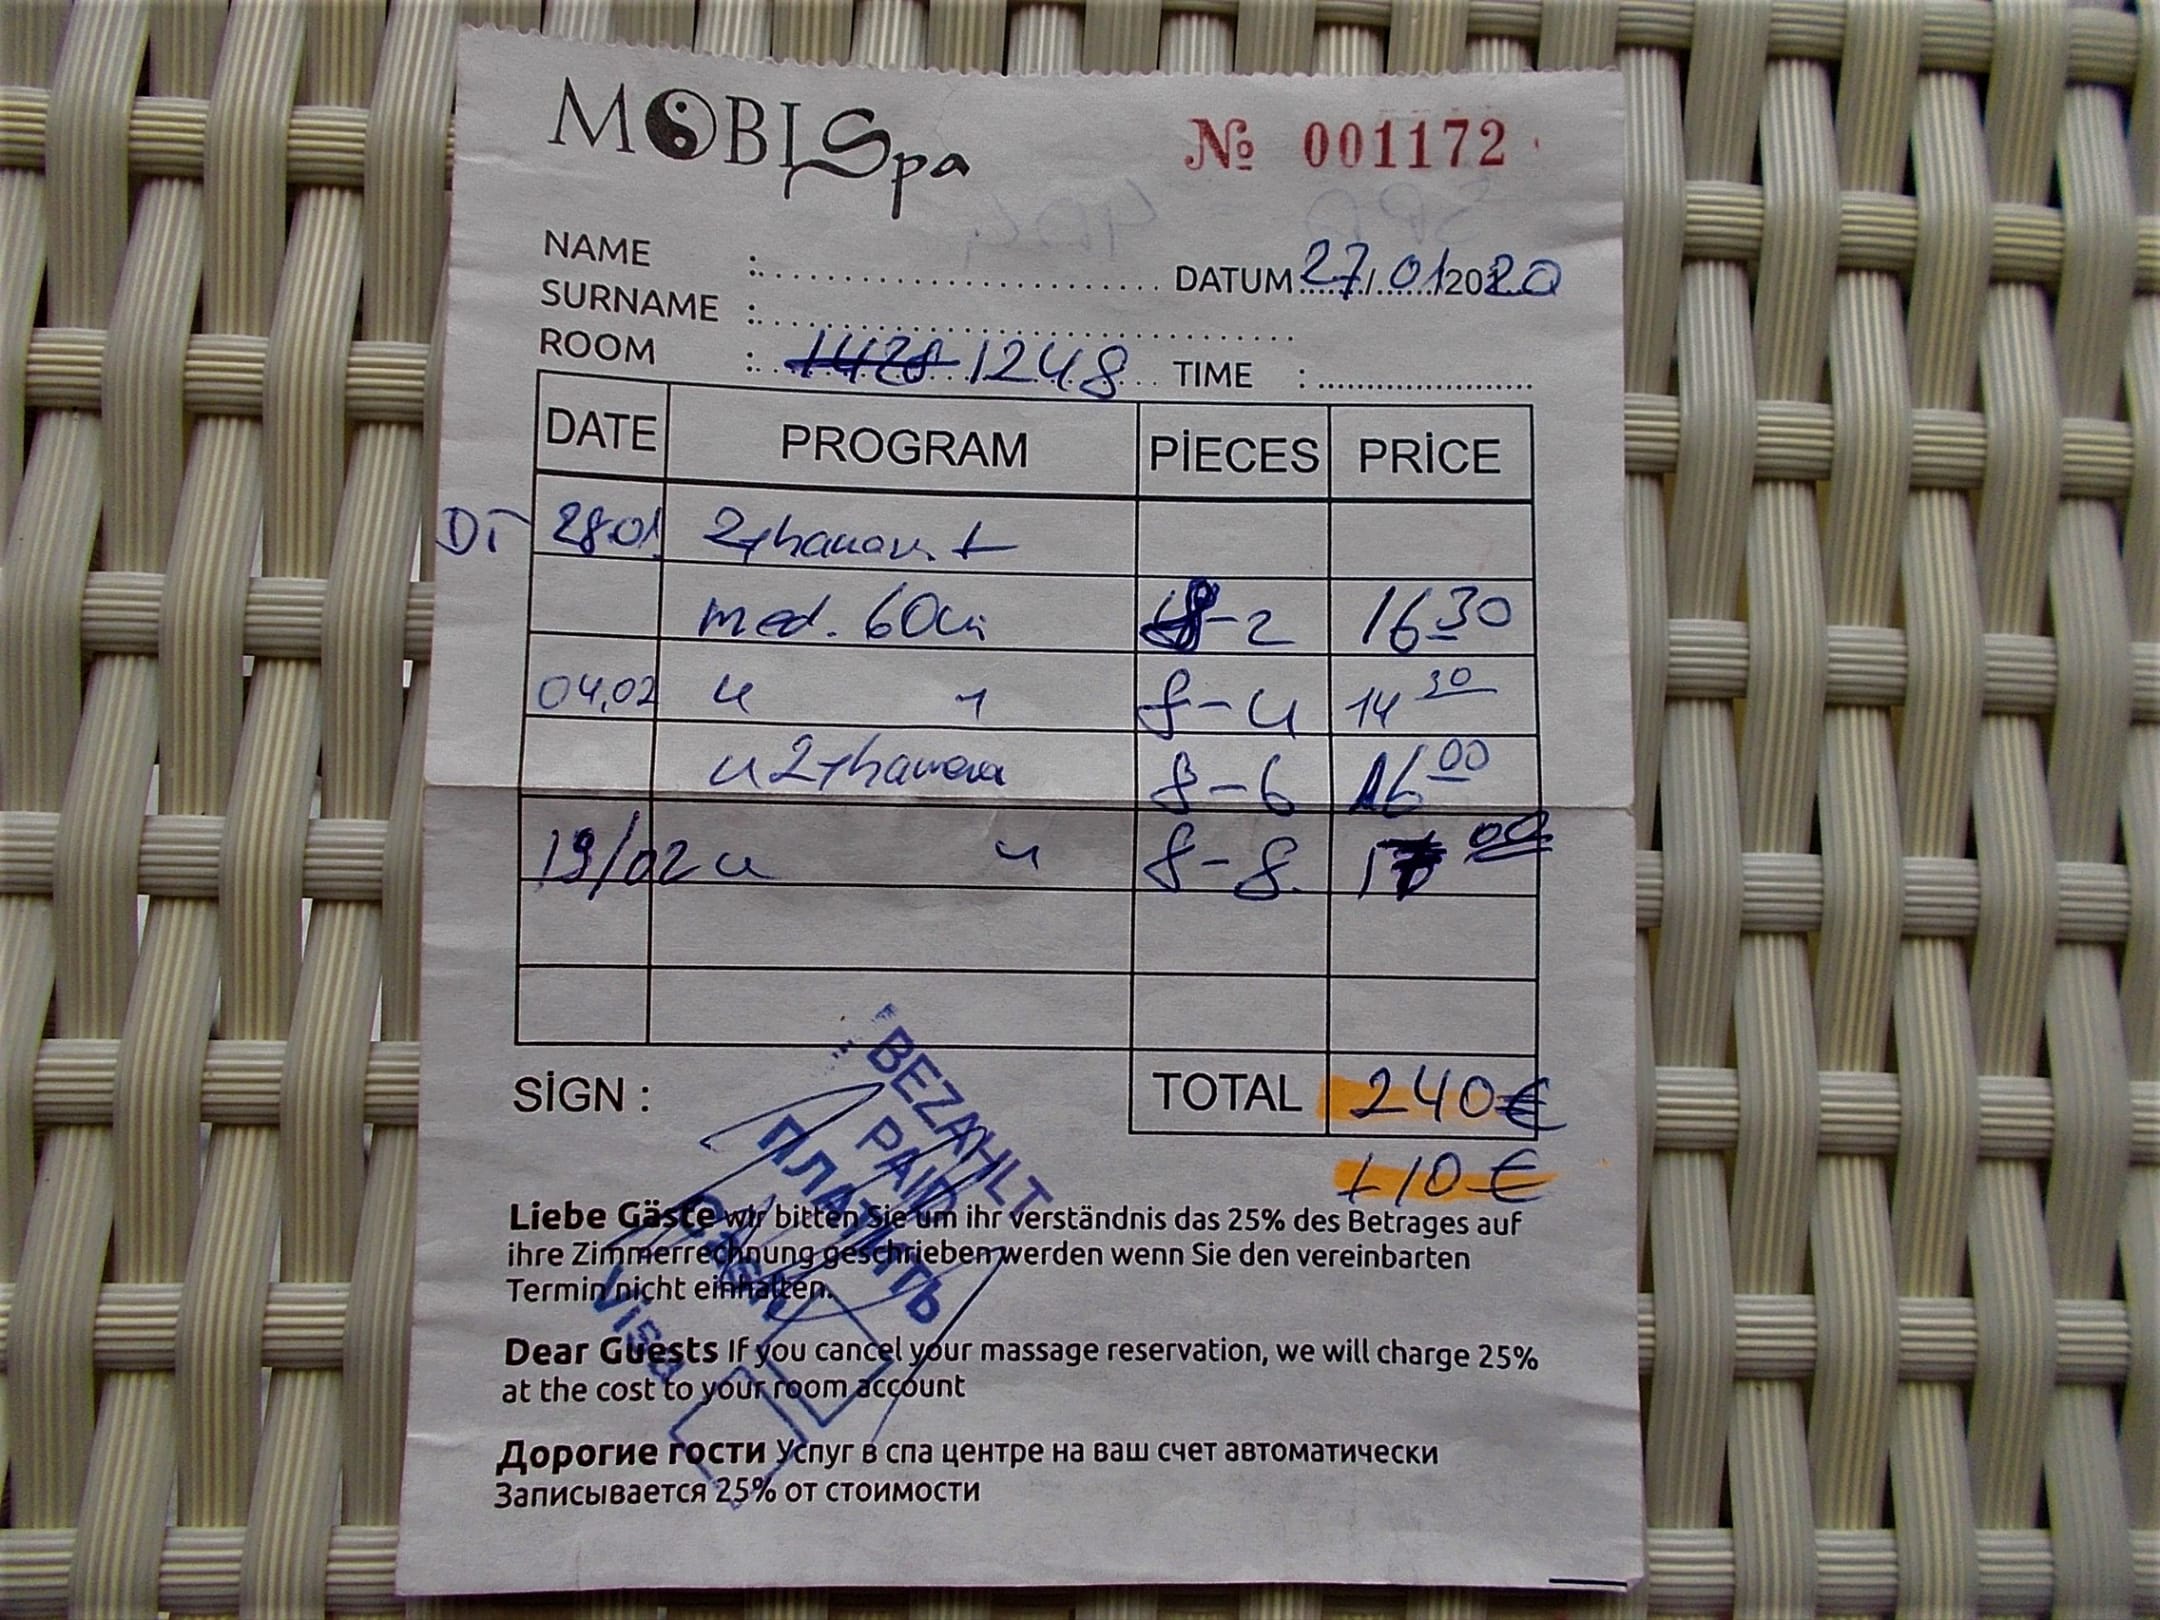 MOBI Spa
№ 001172
NAME :
DATUM 27/01/2020
SURNAME :
ROOM : 1428 1248 TIME :
DATE PROGRAM PİECES PRİCE
DT 28.01
med. 60 8-2 16 30
04.02 8-4 14 30
8-6 16 00
19/02 8-8 17 00
SİGN : TOTAL 240€
+10€
BEZAHLT
PAID
ПЛАТИТЬ
Cash
Visa
Liebe Gäste wir bitten Sie um ihr verständnis das 25% des Betrages auf
ihre Zimmerrechnung geschrieben werden wenn Sie den vereinbarten
Termin nicht einhalten.
Dear Guests If you cancel your massage reservation, we will charge 25%
at the cost to your room account
Дорогие гости Услуг в спа центре на ваш счет автоматически
Записывается 25% от стоимости